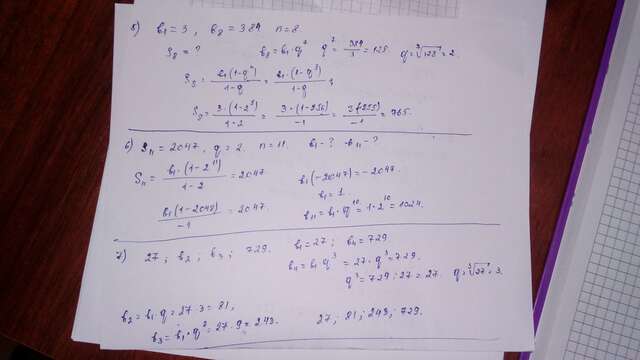 б) b₁ = 3, b₈ = 384 n = 8
S₈ = ? b₈ = b₁·q⁷ q⁷ = 384/3 = 128. q = ⁷√128 = 2.
S₈ = b₁(1-qⁿ)/1-q = b₁(1-q⁸)/1-q;
S₈ = 3·(1-2⁸)/1-2 = 3·(1-256)/-1 = 3(-255)/-1 = 765.
6) S₁₁ = 2047, q = 2. n = 11. b₁ - ? b₁₁ - ?
S₁₁ = b₁·(1-2¹¹)/1-2 = 2047 b₁(-2047) = -2047.
b₁ = 1.
b₁(1-2048)/-1 = 2047. b₁₁ = b₁·q¹⁰ = 1·2¹⁰ = 1024.
7) 27; b₂; b₃; 729. b₁ = 27; b₄ = 729
b₄ = b₁·q³ = 27·q³ = 729.
q³ = 729:27 = 27. q = ³√27 = 3.
b₂ = b₁·q = 27·3 = 81,
b₃ = b₁·q² = 27·9 = 243. 27; 81; 243; 729.